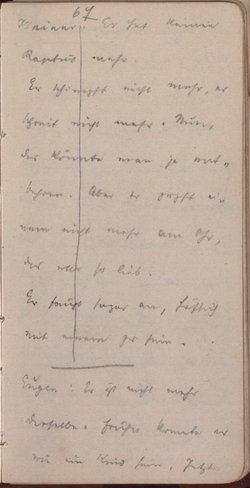 67
Heiner: Er hat keinen
Raptus mehr.
Er schimpft nicht mehr, er
schreit nicht mehr. Nun,
das könnte man ja ent-
behren. Aber er zupft ei-
nem nicht mehr am Ohr,
das war so lieb.
Er fängt sogar an, höflich
mit einem zu sein.
Eugen: Er ist nicht mehr
derselbe. Früher konnte er
wie ein Kind sein. Jetzt